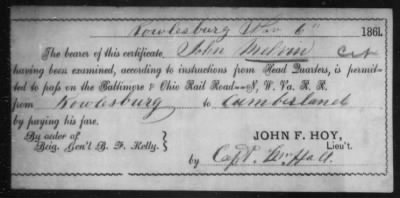 Rowlesburg Nov 6" 1861
The bearer of this certificate, John Melvin
having been examined, according to instructions from Head Quarters, is permit-
ted to pass on the Baltimore & Ohio Rail Road--N. W. Va. R. R.
from Rowlesburg to Cumberland
by paying his fare.
By order of
Brig. Gen'l B. F. Kelly.
JOHN F. HOY,
Lieu't.
by Capt. Wm Hall